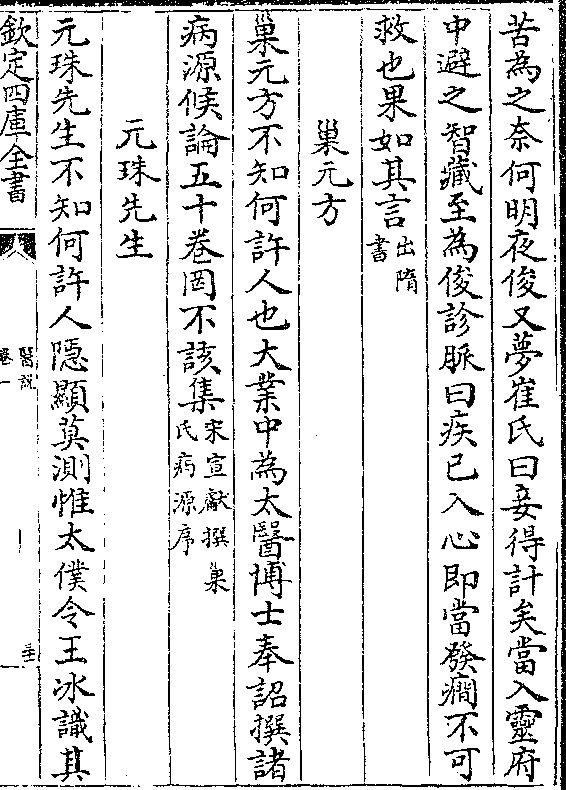 苦為之奈何明夜俊又夢崔氏曰妾得計矣當入靈府
中避之智藏至為俊診脈曰疾已入心即當發癇不可
救也果如其言出隋書
巢元方
巢元方不知何許人也大業中為太醫博士奉詔撰諸
病源候論五十卷罔不該集宋宣獻撰巢氏病源序
元珠先生
元珠先生不知何許人隱顯莫測惟太僕令王冰識其
欽定四庫全書
醫説
卷一